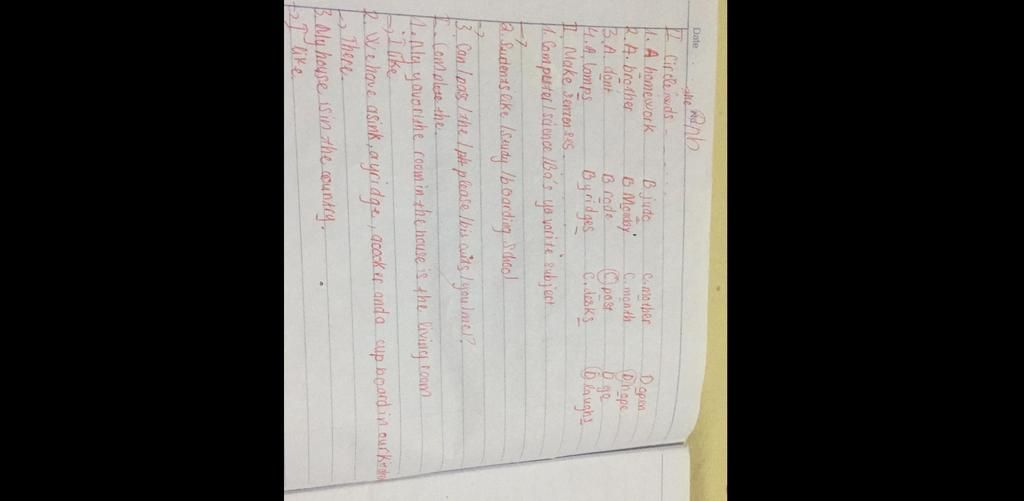 Date
V Circle
1. A homework B judo C. mother D open
2. A. brother B Monday C. month D hope
3. A. dont B rode C post D go
4. A. lamps B yridges C. desks D laughs
II Make
1. Computer / science / Ba's yavorite subject
→
2. Sudents like / study / boarding school
→
3. Can / pass / the / please / biscuits / you / me / ?
Complete the.
1. My yavorite room in the house is the living room
→ I like
2. We have a sink, a yridge, a cooker and a cupboard in our
→ There.
3. My house is in the country.
→ I like